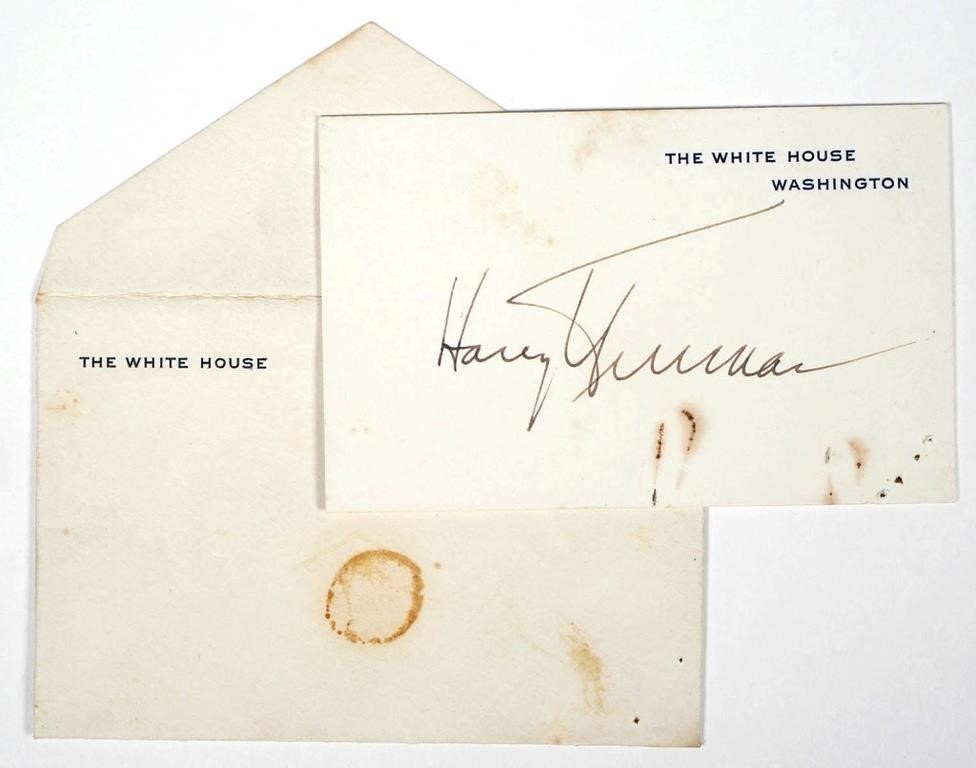 THE WHITE HOUSE
WASHINGTON
Harry Truman
THE WHITE HOUSE